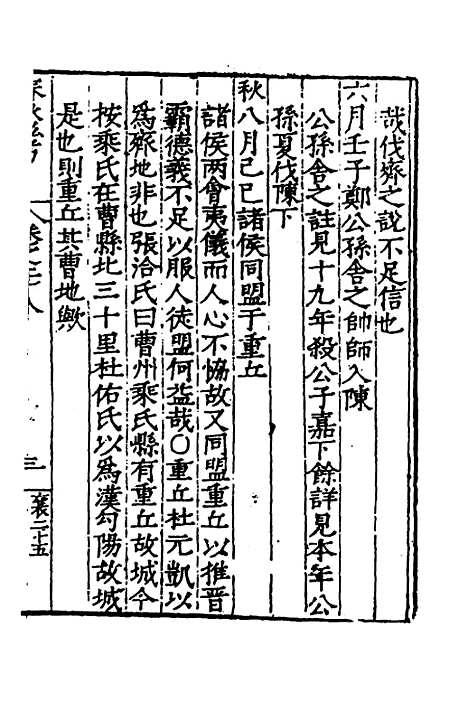 哉伐齊之說不足信也
六月壬子鄭公孫舍之帥師入陳
公孫舍之註見十九年殺公子嘉下餘詳見本年公
孫夏伐陳下
秋八月己巳諸侯同盟于重丘
諸侯兩會夷儀而人心不恊故又同盟重丘以推晋
霸德義不足以服人徒盟何益哉〇重丘杜元凱以
為齊地非也張洽氏曰曹州乘氏縣有重丘故城今
按乘氏在曹縣北三十里杜佑氏以為漢勾陽故城
是也則重丘其曹地歟
三
襄二十五